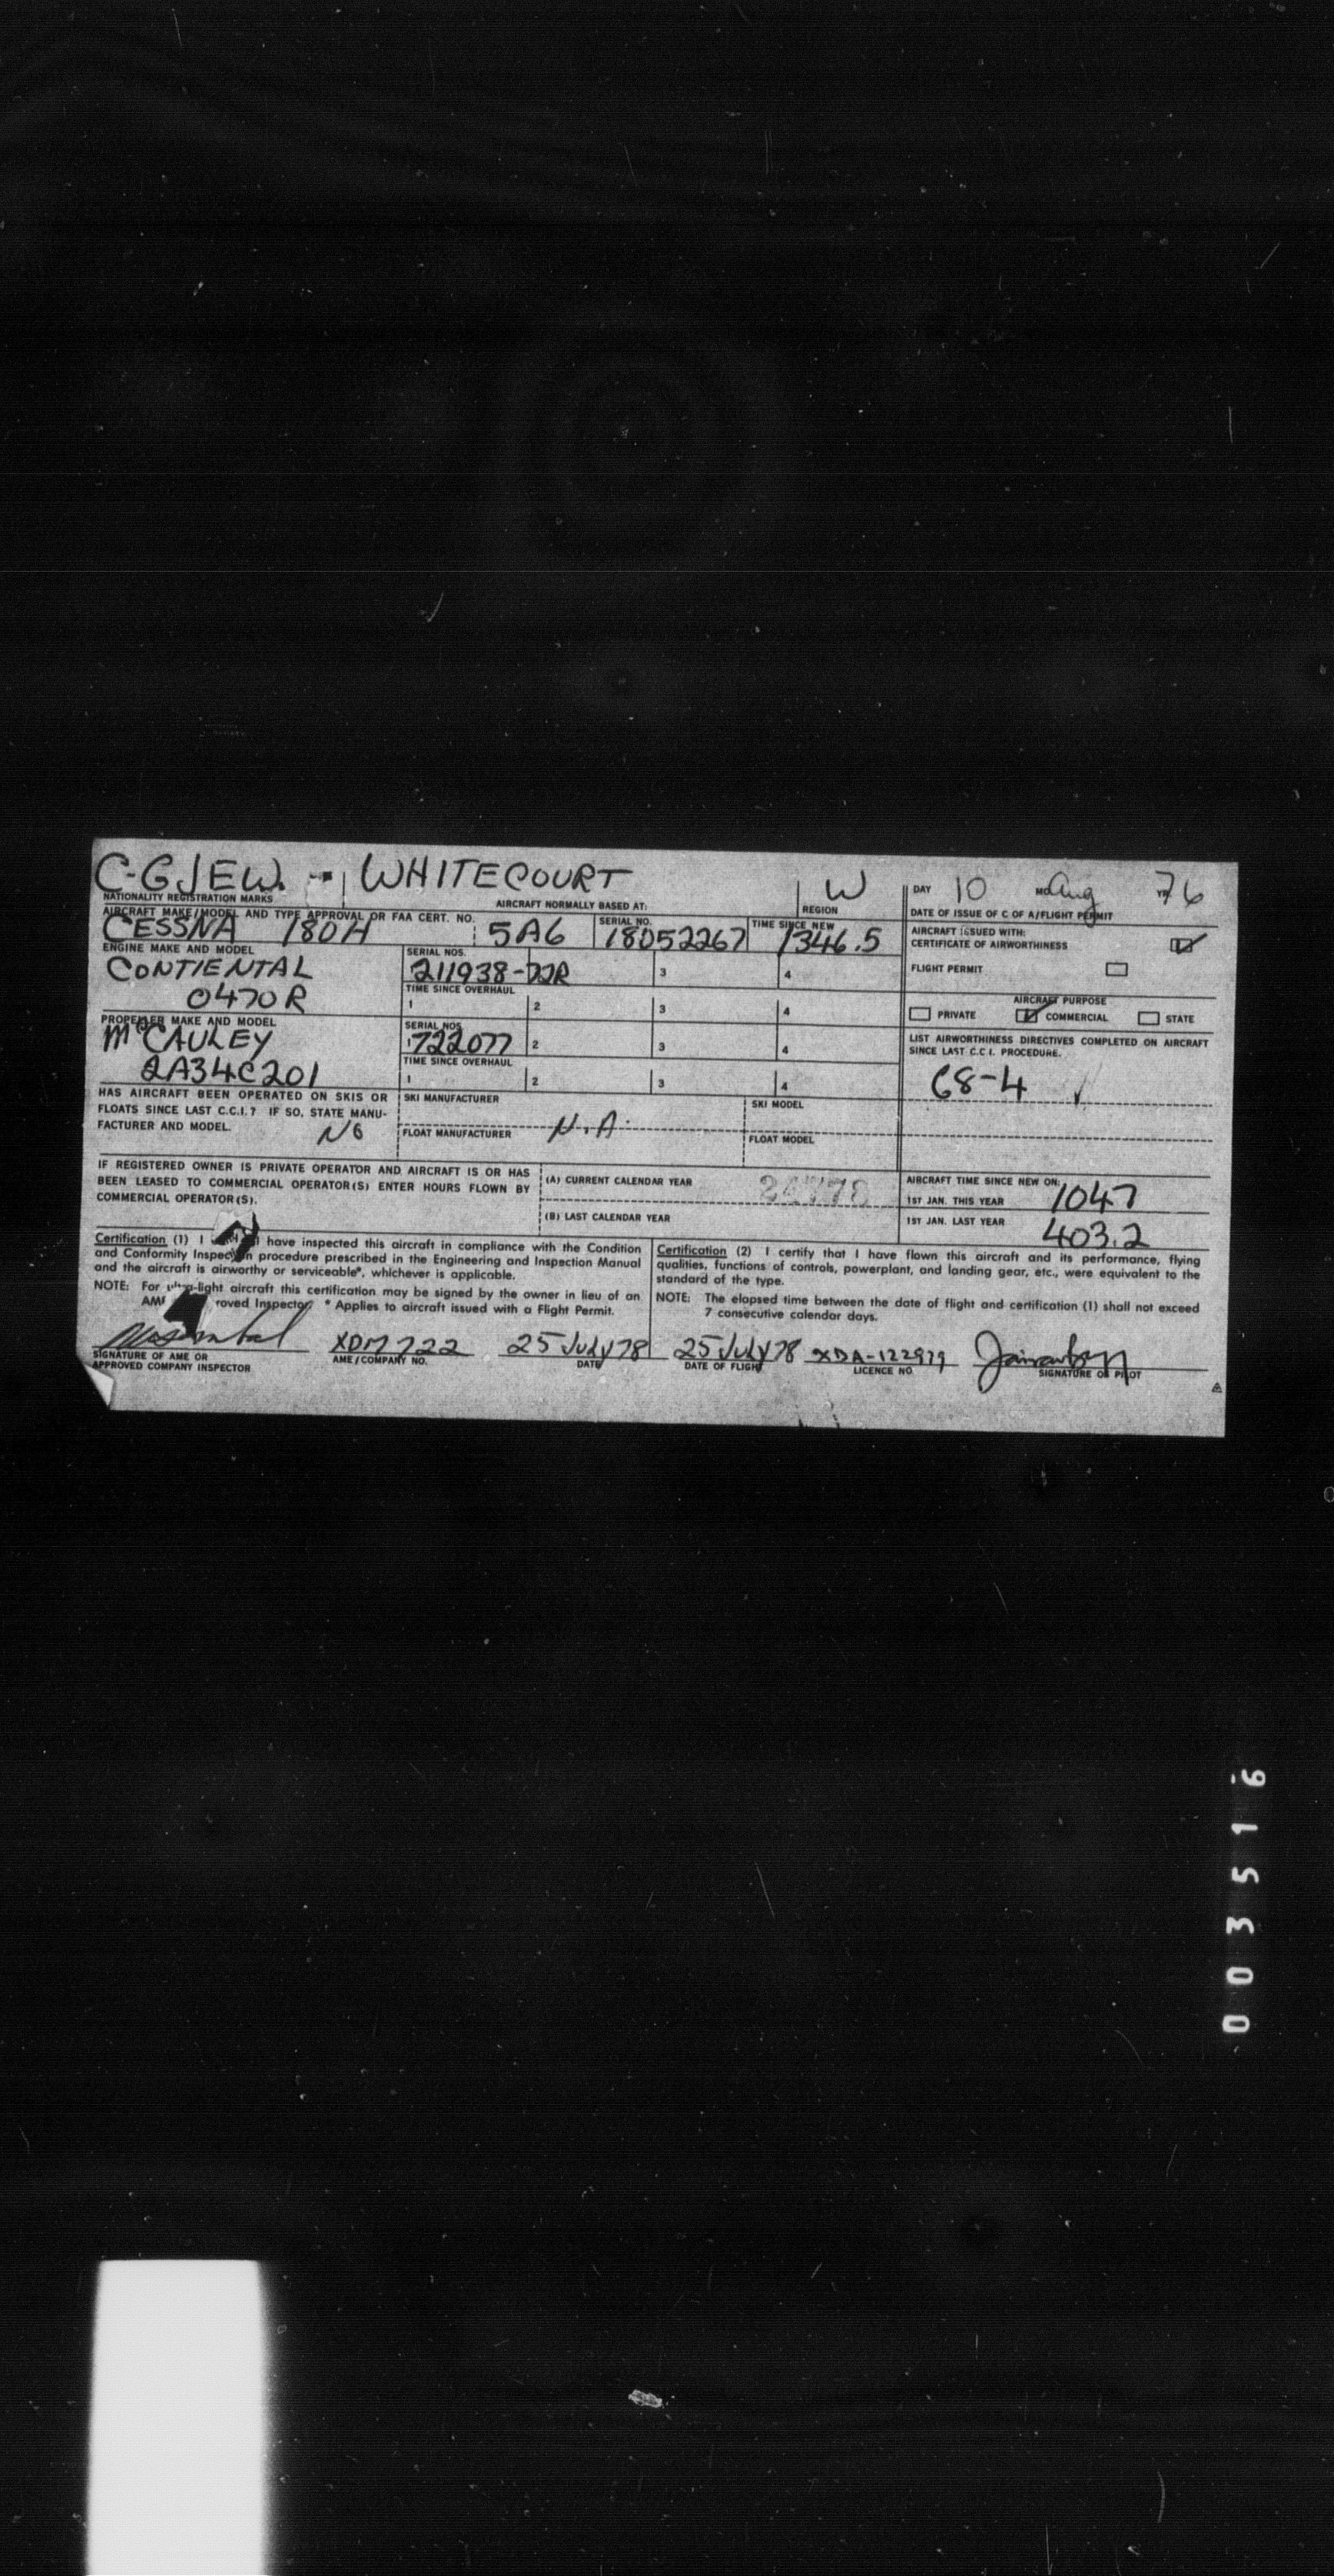 C-GJEW. - WHITECOURT W DAY 10 MO Aug YR 76
NATIONALITY REGISTRATION MARKS AIRCRAFT NORMALLY BASED AT: REGION DATE OF ISSUE OF C OF A/FLIGHT PERMIT
AIRCRAFT MAKE/MODEL AND TYPE APPROVAL OR FAA CERT. NO. SERIAL NO. TIME SINCE NEW
CESSNA 180H 5A6 18052267 1346.5
AIRCRAFT ISSUED WITH:
CERTIFICATE OF AIRWORTHINESS
FLIGHT PERMIT
ENGINE MAKE AND MODEL SERIAL NOS.
CONTIENTAL 211938- 3 4
O470R TIME SINCE OVERHAUL
1 2 3 4
AIRCRAFT PURPOSE
PRIVATE COMMERCIAL STATE
PROPELLER MAKE AND MODEL SERIAL NOS.
McCAULEY 1 722077 2 3 4
2A34C201 TIME SINCE OVERHAUL
1 2 3 4
LIST AIRWORTHINESS DIRECTIVES COMPLETED ON AIRCRAFT
SINCE LAST C.C.I. PROCEDURE.
68-4 ✓
HAS AIRCRAFT BEEN OPERATED ON SKIS OR
FLOATS SINCE LAST C.C.I.? IF SO, STATE MANU-
FACTURER AND MODEL. NO
SKI MANUFACTURER SKI MODEL
N.A.
FLOAT MANUFACTURER FLOAT MODEL
IF REGISTERED OWNER IS PRIVATE OPERATOR AND AIRCRAFT IS OR HAS
BEEN LEASED TO COMMERCIAL OPERATOR(S) ENTER HOURS FLOWN BY
COMMERCIAL OPERATOR(S).
(A) CURRENT CALENDAR YEAR
(B) LAST CALENDAR YEAR
AIRCRAFT TIME SINCE NEW ON:
1ST JAN. THIS YEAR 1047
1ST JAN. LAST YEAR 403.2
Certification (1) I have inspected this aircraft in compliance with the Condition
and Conformity Inspection procedure prescribed in the Engineering and Inspection Manual
and the aircraft is airworthy or serviceable*, whichever is applicable.
NOTE: For ultra-light aircraft this certification may be signed by the owner in lieu of an
AME roved Inspector. * Applies to aircraft issued with a Flight Permit.
Certification (2) I certify that I have flown this aircraft and its performance, flying
qualities, functions of controls, powerplant, and landing gear, etc., were equivalent to the
standard of the type.
NOTE: The elapsed time between the date of flight and certification (1) shall not exceed
7 consecutive calendar days.
XDM 722 25 July 78 25 July 78 XDA-122979
SIGNATURE OF AME OR AME/COMPANY NO. DATE DATE OF FLIGHT LICENCE NO. SIGNATURE OF PILOT
APPROVED COMPANY INSPECTOR
003516